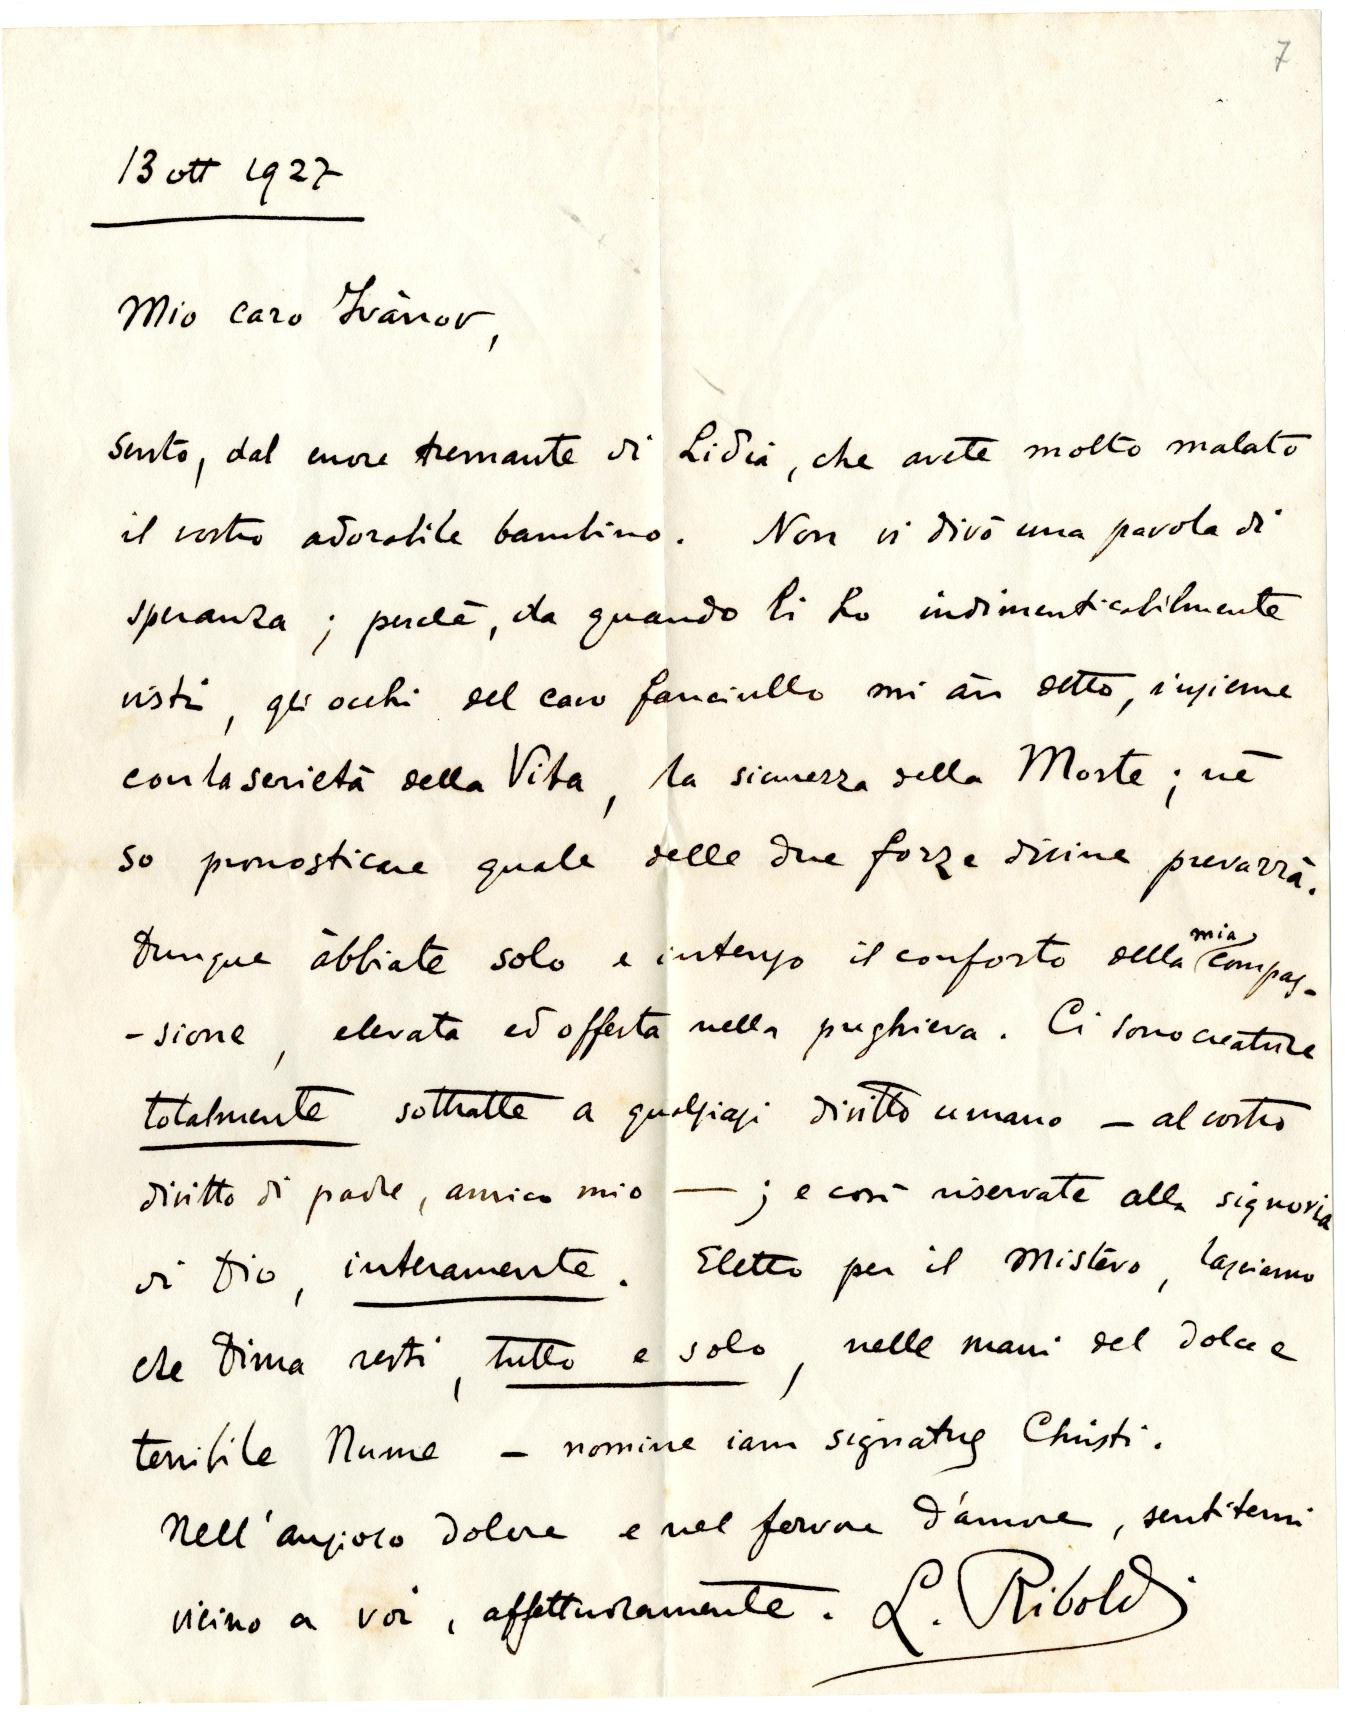 7
13 ott 1927
Mio caro Ivànov,
sento, dal cuore tremante di Lidia, che avete molto malato
il vostro adorabile bambino. Non vi dirò una parola di
speranza; perchè, da quando li ho indimenticabilmente
visti, gli occhi del caro fanciullo mi àn detto, insieme
con la serietà della Vita, la sicurezza della Morte; nè
so pronosticare quale delle due forze divine prevarrà.
Dunque àbbiate solo e intenso il conforto della mia compas-
-sione, elevata ed offerta nella preghiera. Ci sono creature
totalmente sottratte a qualsiasi diritto umano – al vostro
diritto di padre, amico mio –; e così riservate alla signoria
di Dio, interamente. Eletto per il Mistèro, lasciamo
che Dima resti, tutto e solo, nelle mani del dolce e
terribile Nume – nomine iam signatus Christi.
Nell'ansioso dolore e nel fervore d'amore, sentitemi
vicino a voi, affettuosamente. L. Riboldi